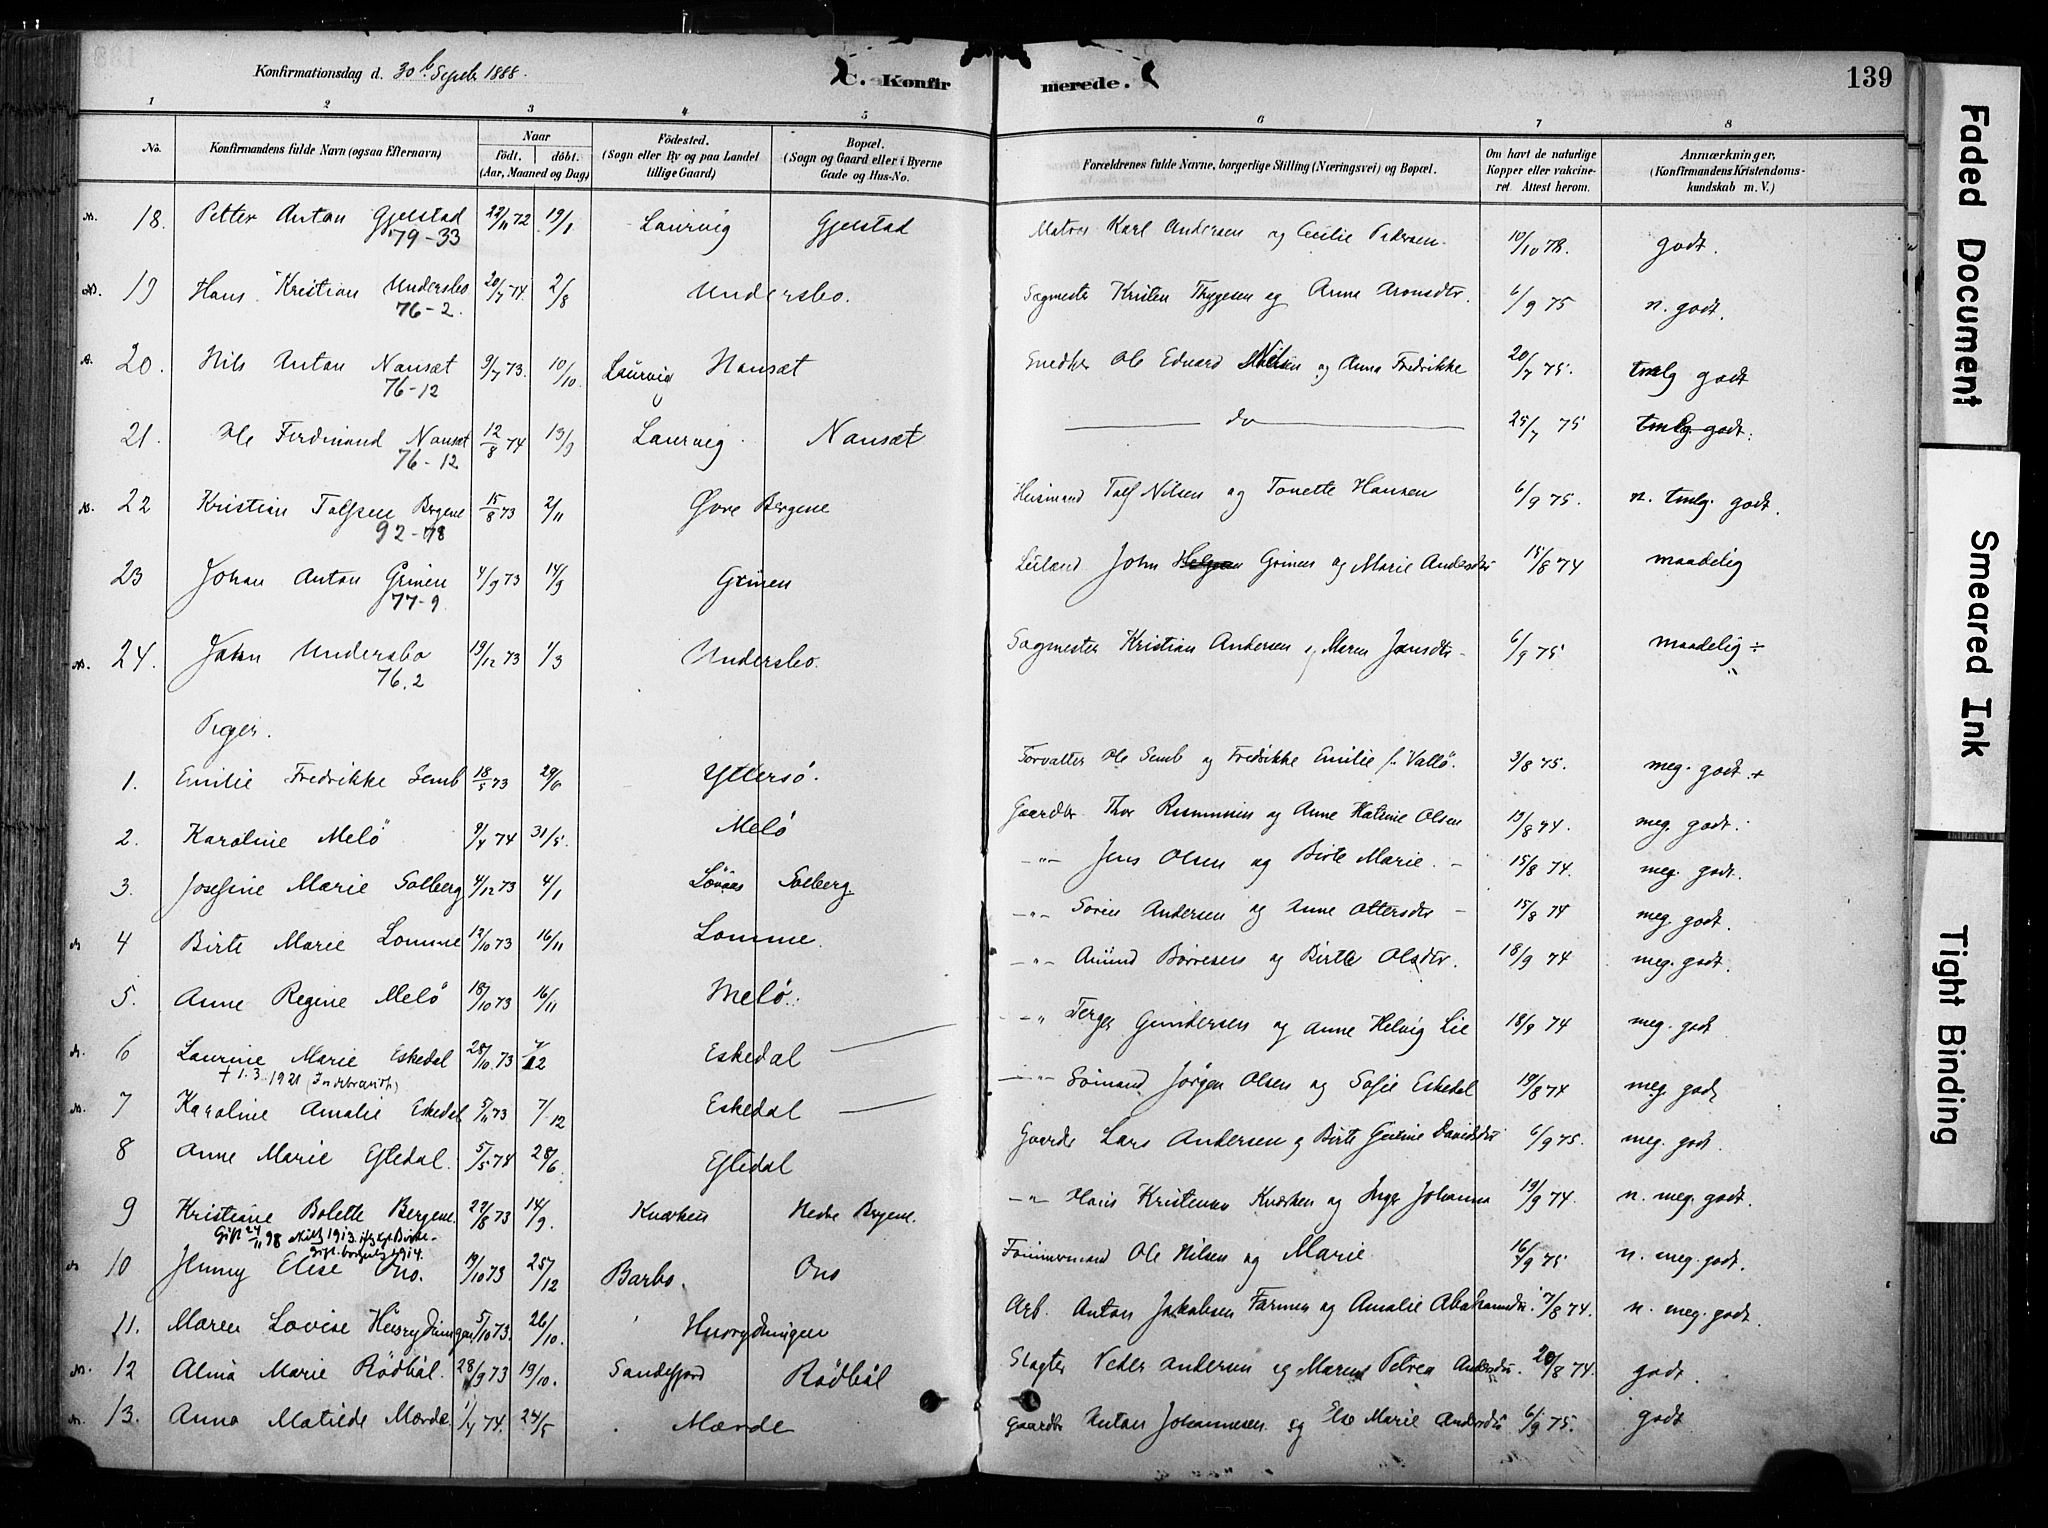 Konfirmationsdag d. 30te Septb 1888.
C. Konfirmerede.
139
1 2 3 4 5 6 7 8
No.
Konfirmandens fulde Navn (ogsaa Efternavn)
Naar
födt. döbt.
(Aar, Maaned og Dag)
Födested.
(Sogn eller By og paa Landet
tillige Gaard)
Bopæl.
(Sogn og Gaard eller i Byerne
Gade og Hus-No.
Forældrenes fulde Navne, borgerlige Stilling (Næringsvei) og Bopæl.
Om havt de naturlige
Kopper eller vakcine-
ret. Attest herom.
Anmærkninger.
(Konfirmandens Kristendoms-
kundskab m. V.)
18. Petter Anton Gjelstad 22/11 72 19/1 Laurvig Gjelstad Matros Karl Andersen og Cecilie Pedersen 10/10 78. godt.
79-33
19 Hans Kristian Undersbo 20/7 74. 2/8 Undersbo. Sagmester Kristen Thygesen og Anna Aronsdtr. 6/9 75 n. godt.
76-2.
20. Nils Anton Nansæt 9/7 73. 10/10 Laurvig Nansæt Snedker Ole Edvard Nilsen og Anna Fredrikke 20/7 75. tmlg godt
76-12
21. Ole Ferdinand Nansæt 12/8 74 13/9 Laurvig. Nansæt do 25/7 75 tmlg. godt.
76-12
22 Kristian Tolfsen Bergene 15/8 73 2/11 Øvre Bergene Husmand Tolf Nilsen og Tonette Hansen 6/9 75. n. tmlg. godt.
92-78
23 Johan Anton Grinen 4/9 73 14/9 Grinen Leiland John Grinen og Marie Andersdtr 15/8 74 maadelig
77-9
24. John Undersbo 19/12 73 1/3 Undersbo. Sagmester Kristian Andersen og Maren Jansdtr 6/9 75 maadelig ÷
76.2
Piger.
1. Emilie Fredrikke Semb 18/5 73 29/6 Yttersö. Forvalter Ole Semb og Fredrikke Emilie f. Vallö. 3/8 75. meg. godt. +
2. Karoline Melö 9/4 74 31/5. Melö Gaardbr. Thor Rasmussen og Anne Katrine Olsen 19/8 74. meg. godt.
3. Josefine Marie Solberg 4/12 73 4/1 Solberg. -"- Jens Olsen og Birte Marie. 15/8 74. meg. godt.
4 Birte Marie Lomme 12/10 73 16/11 Lomme. -"- Sören Andersen og Anne Ottersdtr 15/8 74 meg. godt.
5. Anne Regine Melö 18/10 73 16/11 Melö. -"- Amund Börresen og Birte Olsdtr. 18/9 74 meg. godt.
6 Laurine Marie Eskedal 28/10. 73 7/12 Eskedal -"- Terger Gundersen og Anne Helvig Lie 18/8 74 meg. godt
+ 1.3.1921
7 Karoline Amalie Eskedal 5/11 73 7/12 Eskedal -"- Sömand Jörgen Olsen og Sofie Eskedal 19/8 74 meg. godt
8 Anne Marie Efledal. 5/5 74 28/6. Efledal Gaardb Lars Andersen og Birte Gurine Davidsdtr 6/9 75. meg. godt.
9 Kristiane Bolette Bergene. 27/8 73 14/9. Knerken Nedre Bergene. -"- Hans Kristensen Knerken og Inger Johanna 19/9 74. n. meg. godt.
Gift 24/11 98
10 Jenny Elise Ono. 19/10 73 25/12 Barbo. Ono Tömmermand Ole Nilsen og Marie 16/9 75 n. meg. godt.
11. Maren Lovise Husrydningen 5/10 73. 26/10. Husrydningen Arb. Anton Jakobsen Farmen og Amalie Abrahamsdtr. 7/8 74. n. meg. godt.
12 Alma Marie Rödböl. 28/9 73 19/10. Sandefjord Rödböl Slagter Peder Andersen og Maren Petrea Andersdtr. 20/8 74. godt.
13. Anna Matilde Mærde. 1/4 74. 24/5 Mærde gaardbr Anton Johannesen og Else Marie Andersdtr 6/9 75. godt
Faded Document
Smeared Ink
Tight Binding